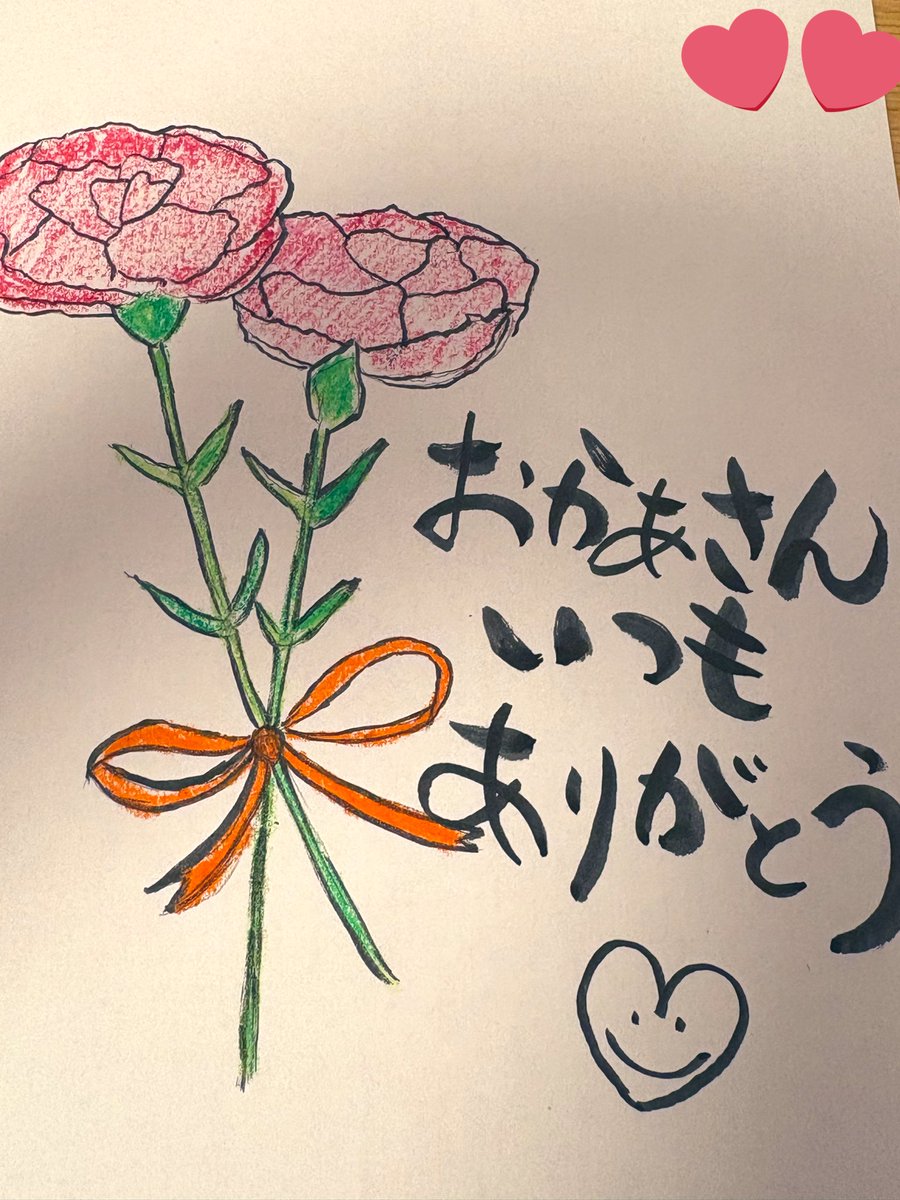 おかぁさん
いつも
ありがとう